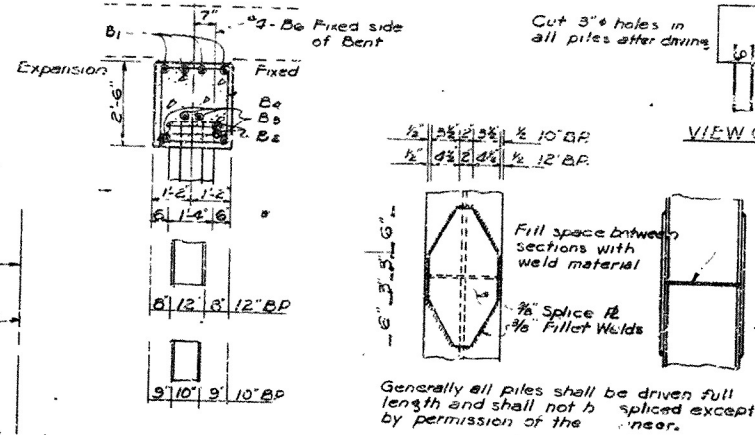 7"
#4-B6 Fixed side
of Bent
B1
Expansion
Fixed
2'-6"
B4
B3
B2
1'-2" 1'-2"
6" 1'-4" 6"
8" 12" 8" 12" BP
9" 10" 9" 10" BP
Cut 3"ϕ holes in
all piles after driving
VIEW
1/2" 3 1/2" 2" 3 1/2" 1/2 10" BP.
1/2" 4 1/2" 2" 4 1/2" 1/2 12" BP.
6" 3" 3" 6"
Fill space between
sections with
weld material
3/8" Splice PL
3/8" Fillet Welds
Generally all piles shall be driven full
length and shall not spliced except
by permission of the